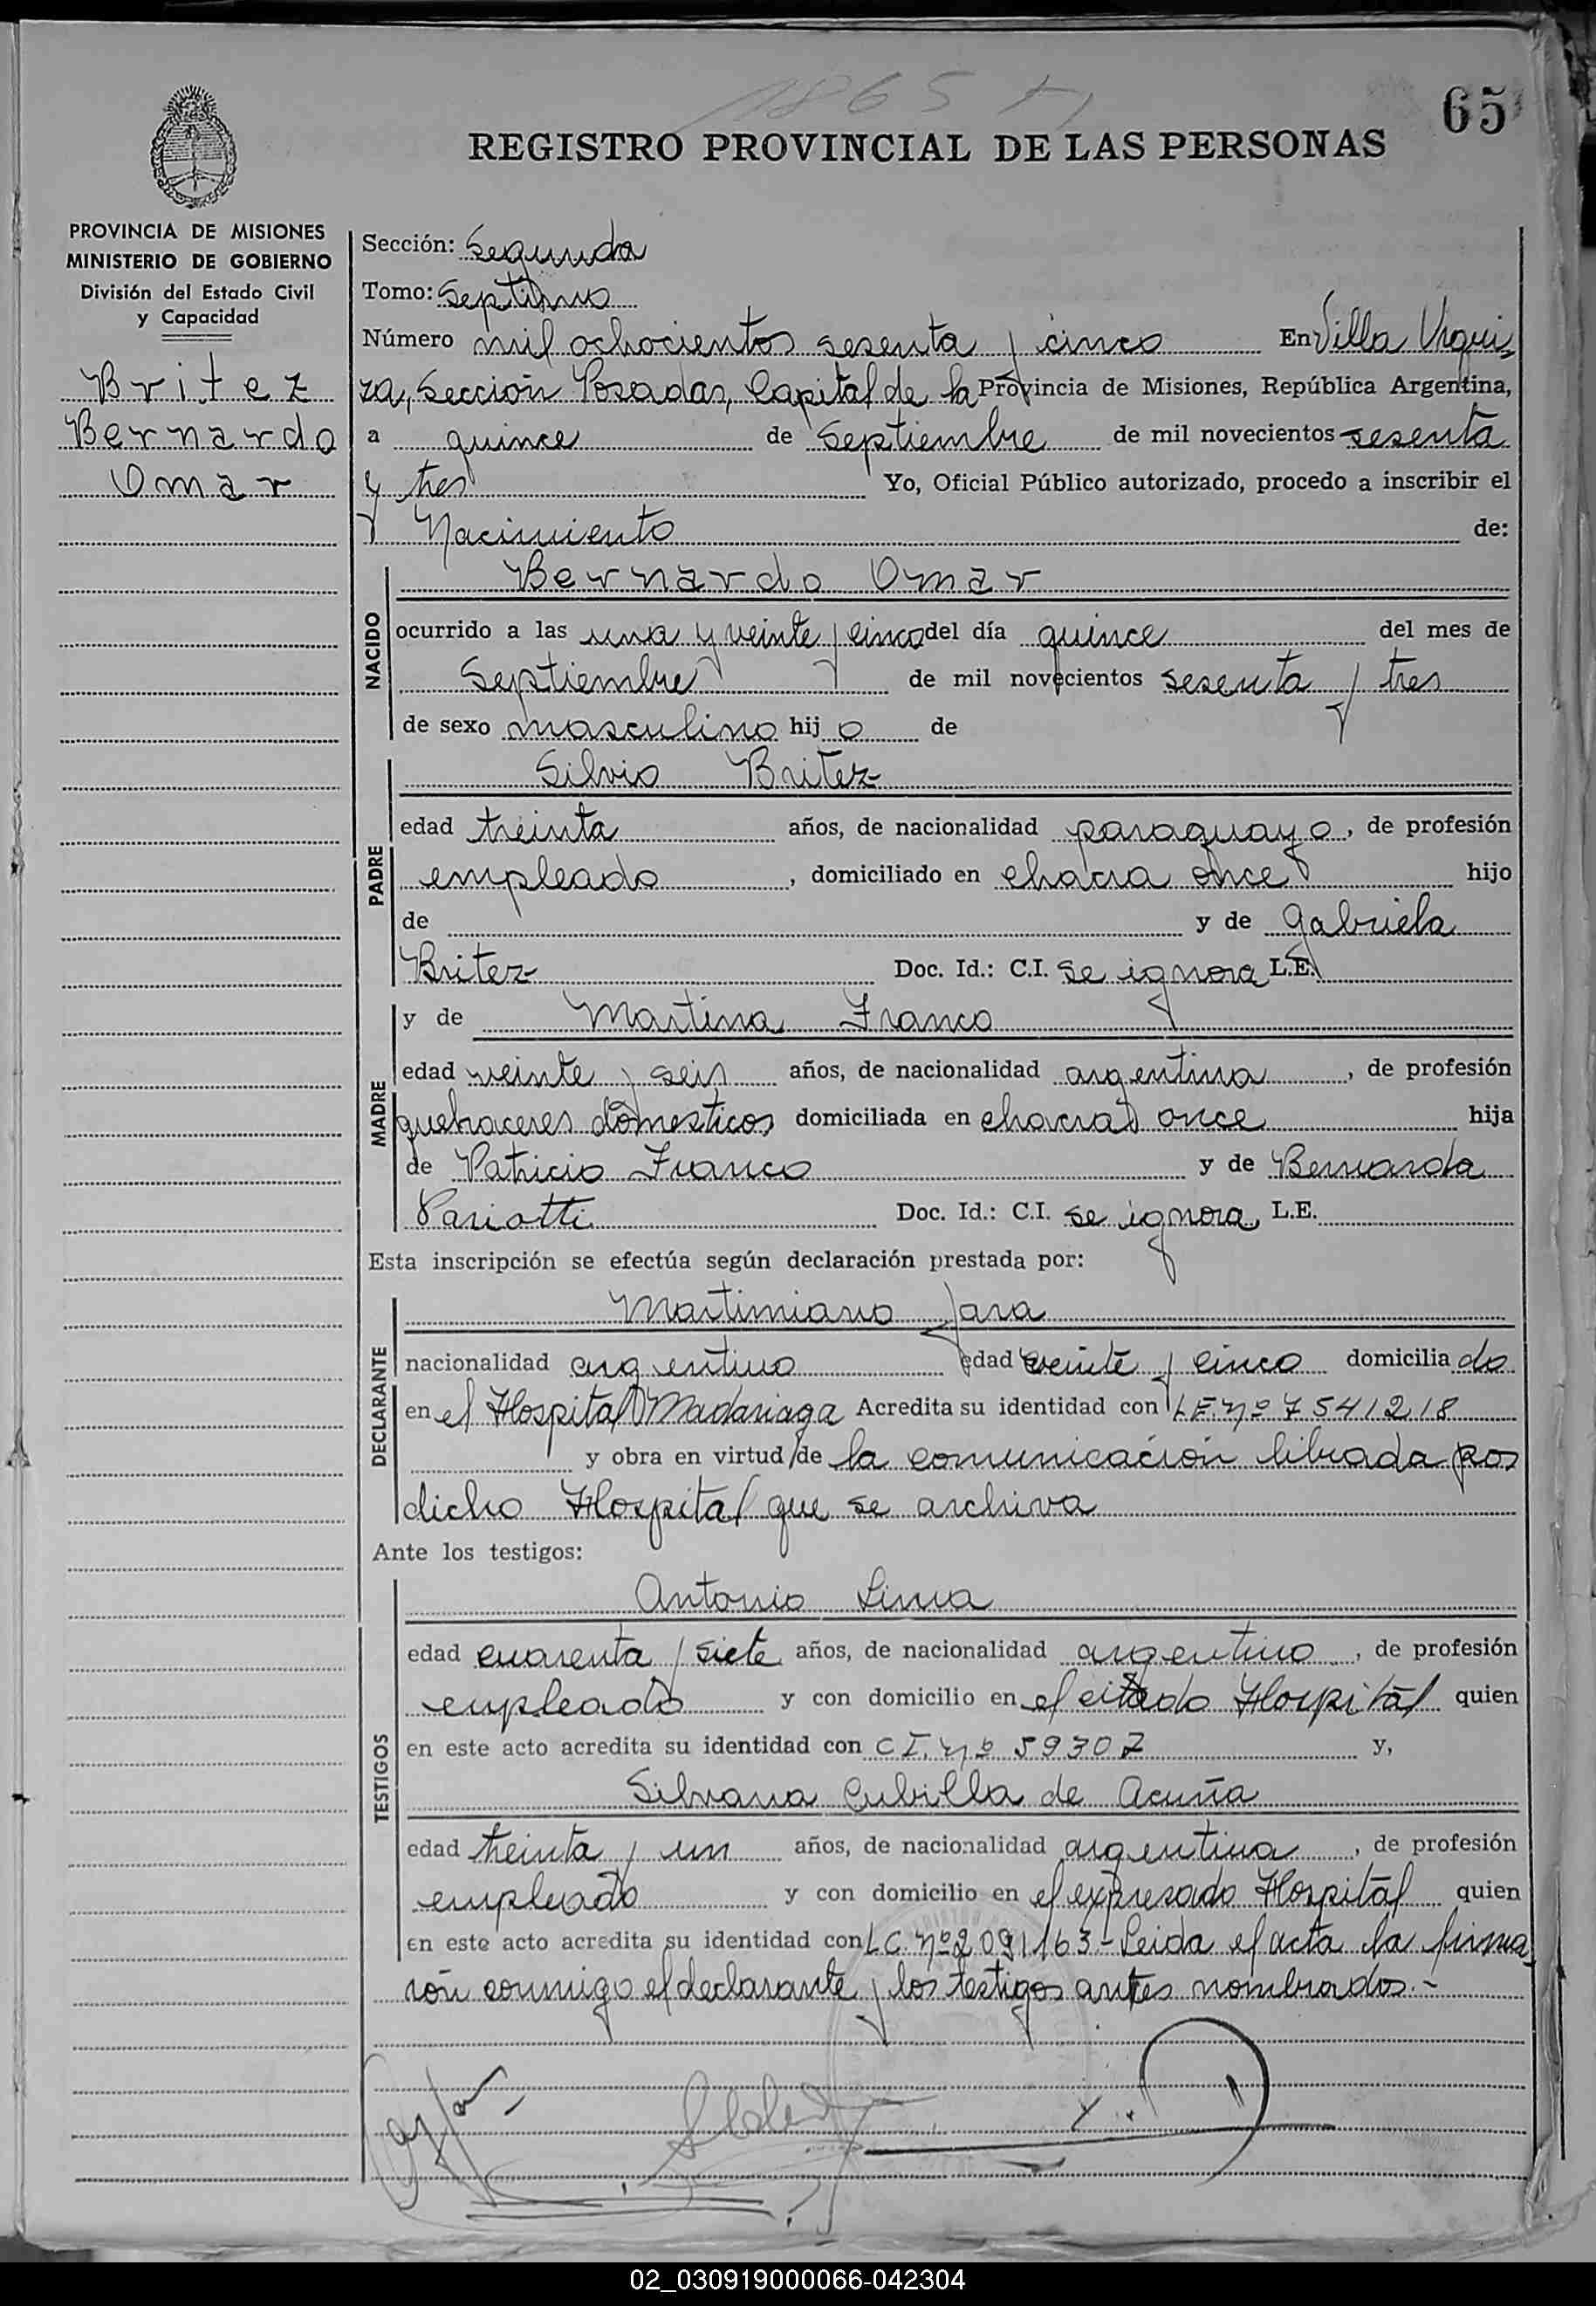 1865
65
REGISTRO PROVINCIAL DE LAS PERSONAS
PROVINCIA DE MISIONES
MINISTERIO DE GOBIERNO
División del Estado Civil
y Capacidad
Britez
Bernardo
Omar
Sección: Segunda
Tomo: Septimo
Número mil ochocientos sesenta y cinco En Villa Urqui-
za, Sección Posadas, Capital de la Provincia de Misiones, República Argentina,
a quince de Septiembre de mil novecientos sesenta
y tres Yo, Oficial Público autorizado, procedo a inscribir el
Nacimiento de:
NACIDO
Bernardo Omar
ocurrido a las una y veinte y cinco del día quince del mes de
Septiembre de mil novecientos sesenta y tres
de sexo masculino hij o de
PADRE
Silvio Britez
edad treinta años, de nacionalidad paraguayo, de profesión
empleado, domiciliado en chacra once hijo
de y de Gabriela
Britez Doc. Id.: C.I. se ignora L.E.
MADRE
y de Martina Franco
edad veinte y seis años, de nacionalidad argentina, de profesión
quehaceres domesticos domiciliada en chacra once hija
de Patricio Franco y de Bernarda
Pariotti Doc. Id.: C.I. se ignora L.E.
Esta inscripción se efectúa según declaración prestada por:
DECLARANTE
Martimiano Jara
nacionalidad argentino edad veinte y cinco domicilia do
en el Hospital Madariaga Acredita su identidad con L.E. nº 7541218
y obra en virtud de la comunicación librada por
dicho Hospital que se archiva
Ante los testigos:
TESTIGOS
Antonio Lima
edad cuarenta y siete años, de nacionalidad argentino, de profesión
empleado y con domicilio en el citado Hospital quien
en este acto acredita su identidad con C.I. nº 59307 y,
Silvana Cubilla de Acuña
edad treinta y un años, de nacionalidad argentina, de profesión
empleado y con domicilio en el expresado Hospital quien
en este acto acredita su identidad con L.C. nº 2091163.- Leida el acta la firma-
rón conmigo el declarante y los testigos antes nombrados.-
02_030919000066-042304